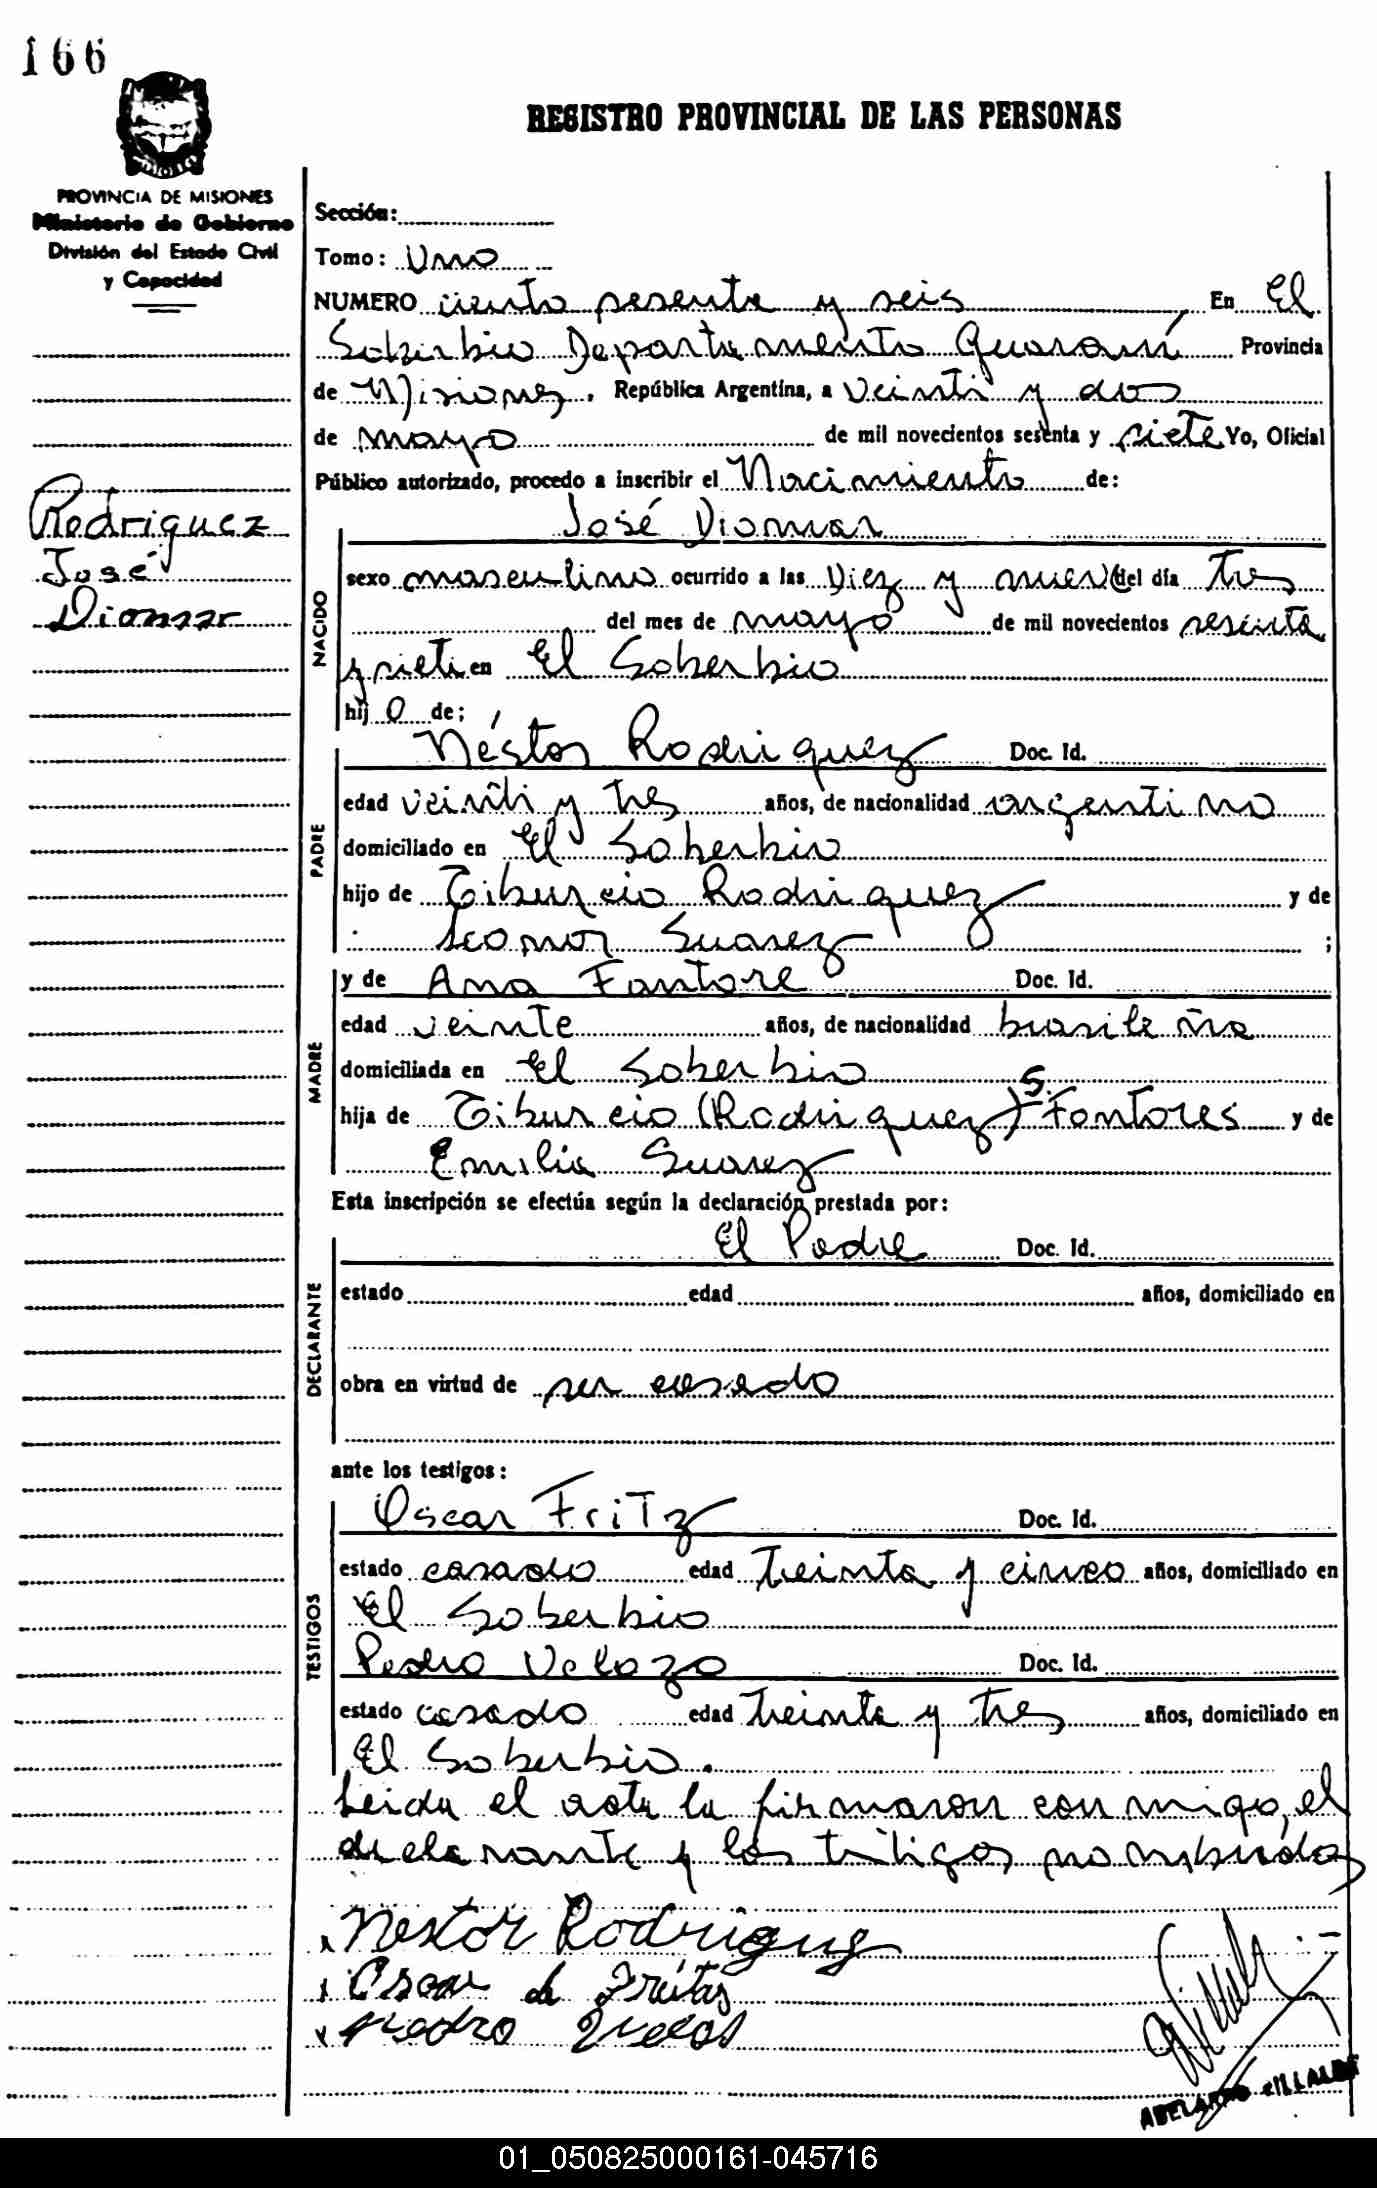 166
REGISTRO PROVINCIAL DE LAS PERSONAS
PROVINCIA DE MISIONES
Ministerio de Gobierno
División del Estado Civil
y Capacidad
Rodriguez
José
Diomar
Sección:
Tomo: Uno
NUMERO ciento sesenta y seis En El
Soberbio Departamento Guaraní Provincia
de Misiones, República Argentina, a veinti y dos
de mayo de mil novecientos sesenta y siete Yo, Oficial
Público autorizado, procedo a inscribir el Nacimiento de:
José Diomar
NACIDO
sexo masculino ocurrido a las Diez y nueve del día tres
del mes de mayo de mil novecientos sesenta
y siete en El Soberbio
hijo de:
PADRE
Néstor Rodriguez Doc. Id.
edad veinti y tres años, de nacionalidad argentino
domiciliado en El Soberbio
hijo de Tiburcio Rodriguez y de
Leonor Suarez ;
MADRE
y de Ana Fantore Doc. Id.
edad veinte años, de nacionalidad brasileña
domiciliada en El Soberbio
hija de Tiburcio (Rodriguez) S. Fontores y de
Emilia Suarez
Esta inscripción se efectúa según la declaración prestada por:
DECLARANTE
El Padre Doc. Id.
estado edad años, domiciliado en
obra en virtud de ser casado
ante los testigos:
TESTIGOS
Oscar Fritz Doc. Id.
estado casado edad treinta y cinco años, domiciliado en
El Soberbio
Pedro Velozo Doc. Id.
estado casado edad treinta y tres años, domiciliado en
El Soberbio.
Leida el acta la firmaron conmigo, el
declarante y los testigos nombrados
x Nestor Rodriguez
x Oscar de Freitas
x Pedro
ABELARDO VILLALBA
01_050825000161-045716